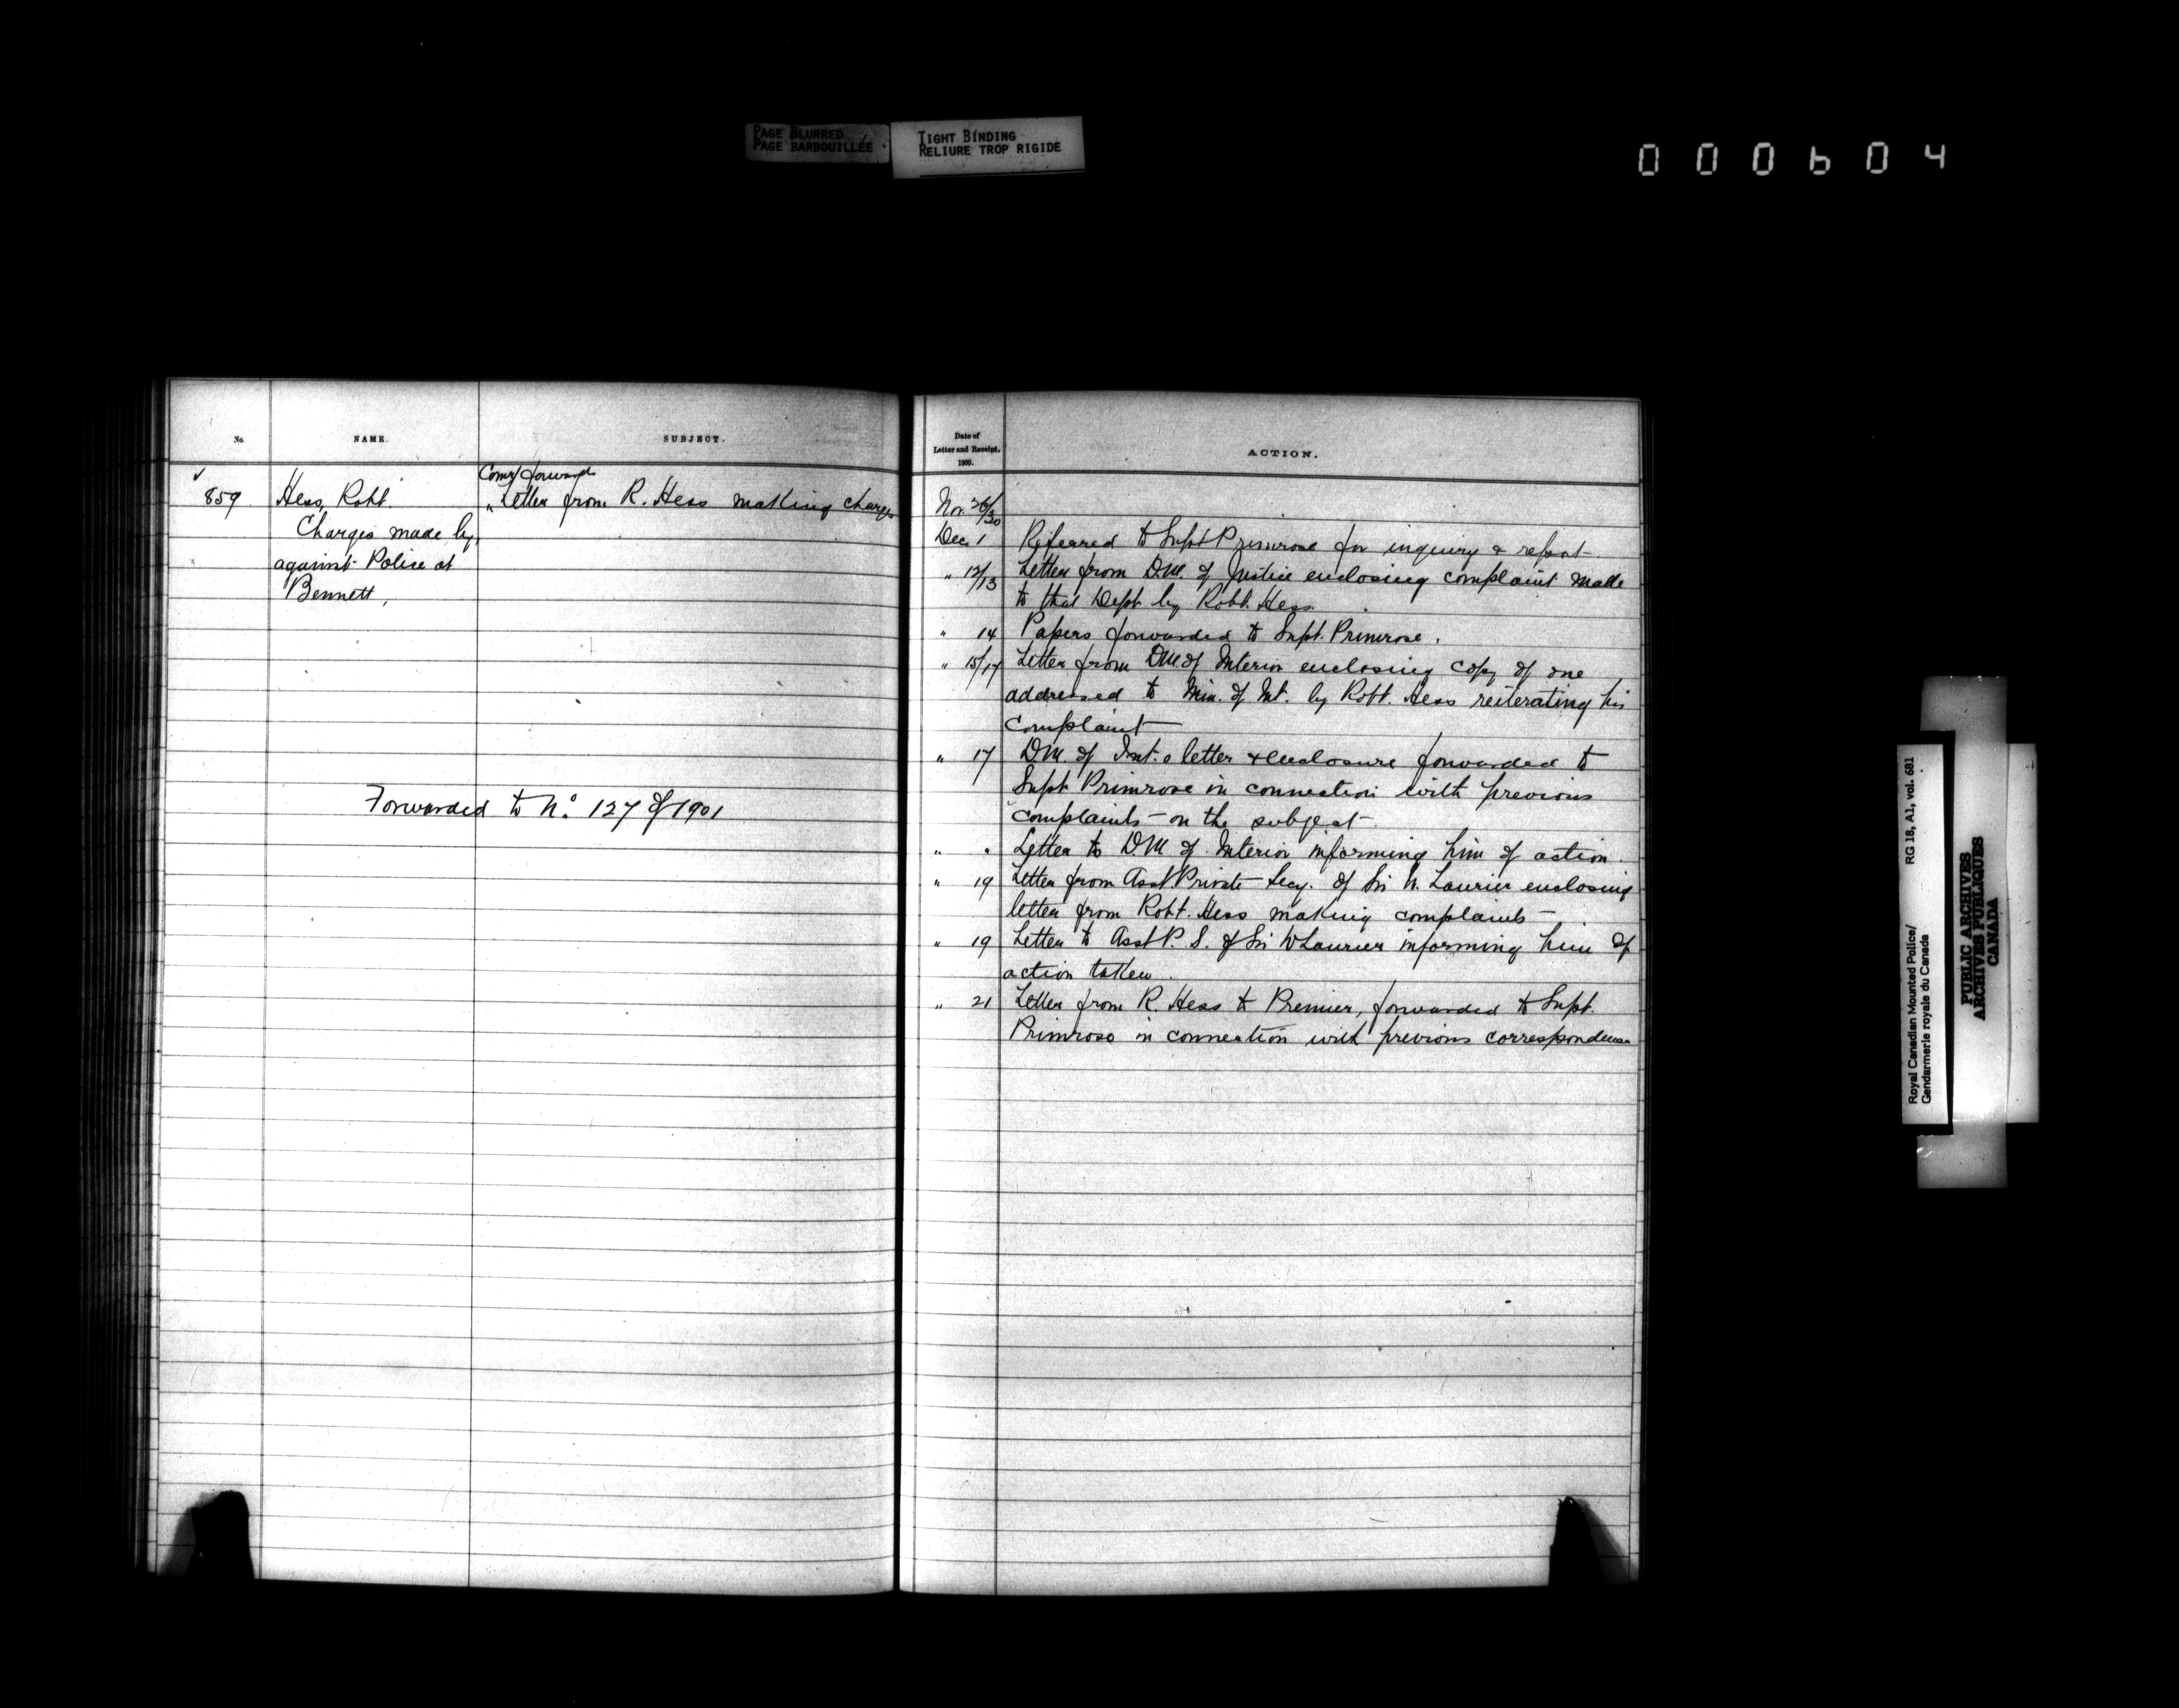 PAGE BLURRED
PAGE BARBOUILLÉE
TIGHT BINDING
RELIURE TROP RIGIDE
000604
No.
NAME.
SUBJECT.
859
Hess, Robt.
Charges made by
against Police at
Bennett,
Comr forwards
" Letter from R. Hess making charges
Forwarded to No. 127 of 1901
Date of
Letter and Receipt,
1900.
ACTION.
Nov. 26/30
Dec 1 Referred to Supt Primrose for inquiry & report
" 12/13 Letter from D.M. of Justice enclosing complaint made
to that Dept by Robt. Hess.
" 14 Papers forwarded to Supt. Primrose.
" 15/17 Letter from D.M. of Interior enclosing copy of one
addressed to Min. of Int. by Robt. Hess reiterating his
complaint
" 17 D.M. of Int.s letter & enclosure forwarded to
Supt Primrose in connection with previous
complaints on the subject
" " Letter to D.M. of Interior informing him of action.
" 19 Letter from Asst Private Secy. of Sir W. Laurier enclosing
letter from Robt. Hess making complaints
" 19 Letter to Asst P. S. of Sir W Laurier informing him of
action taken.
" 21 Letter from R. Hess to Premier, forwarded to Supt.
Primrose in connection with previous correspondence
Royal Canadian Mounted Police/
Gendarmerie royale du Canada
RG 18, A1, vol. 681
PUBLIC ARCHIVES
ARCHIVES PUBLIQUES
CANADA